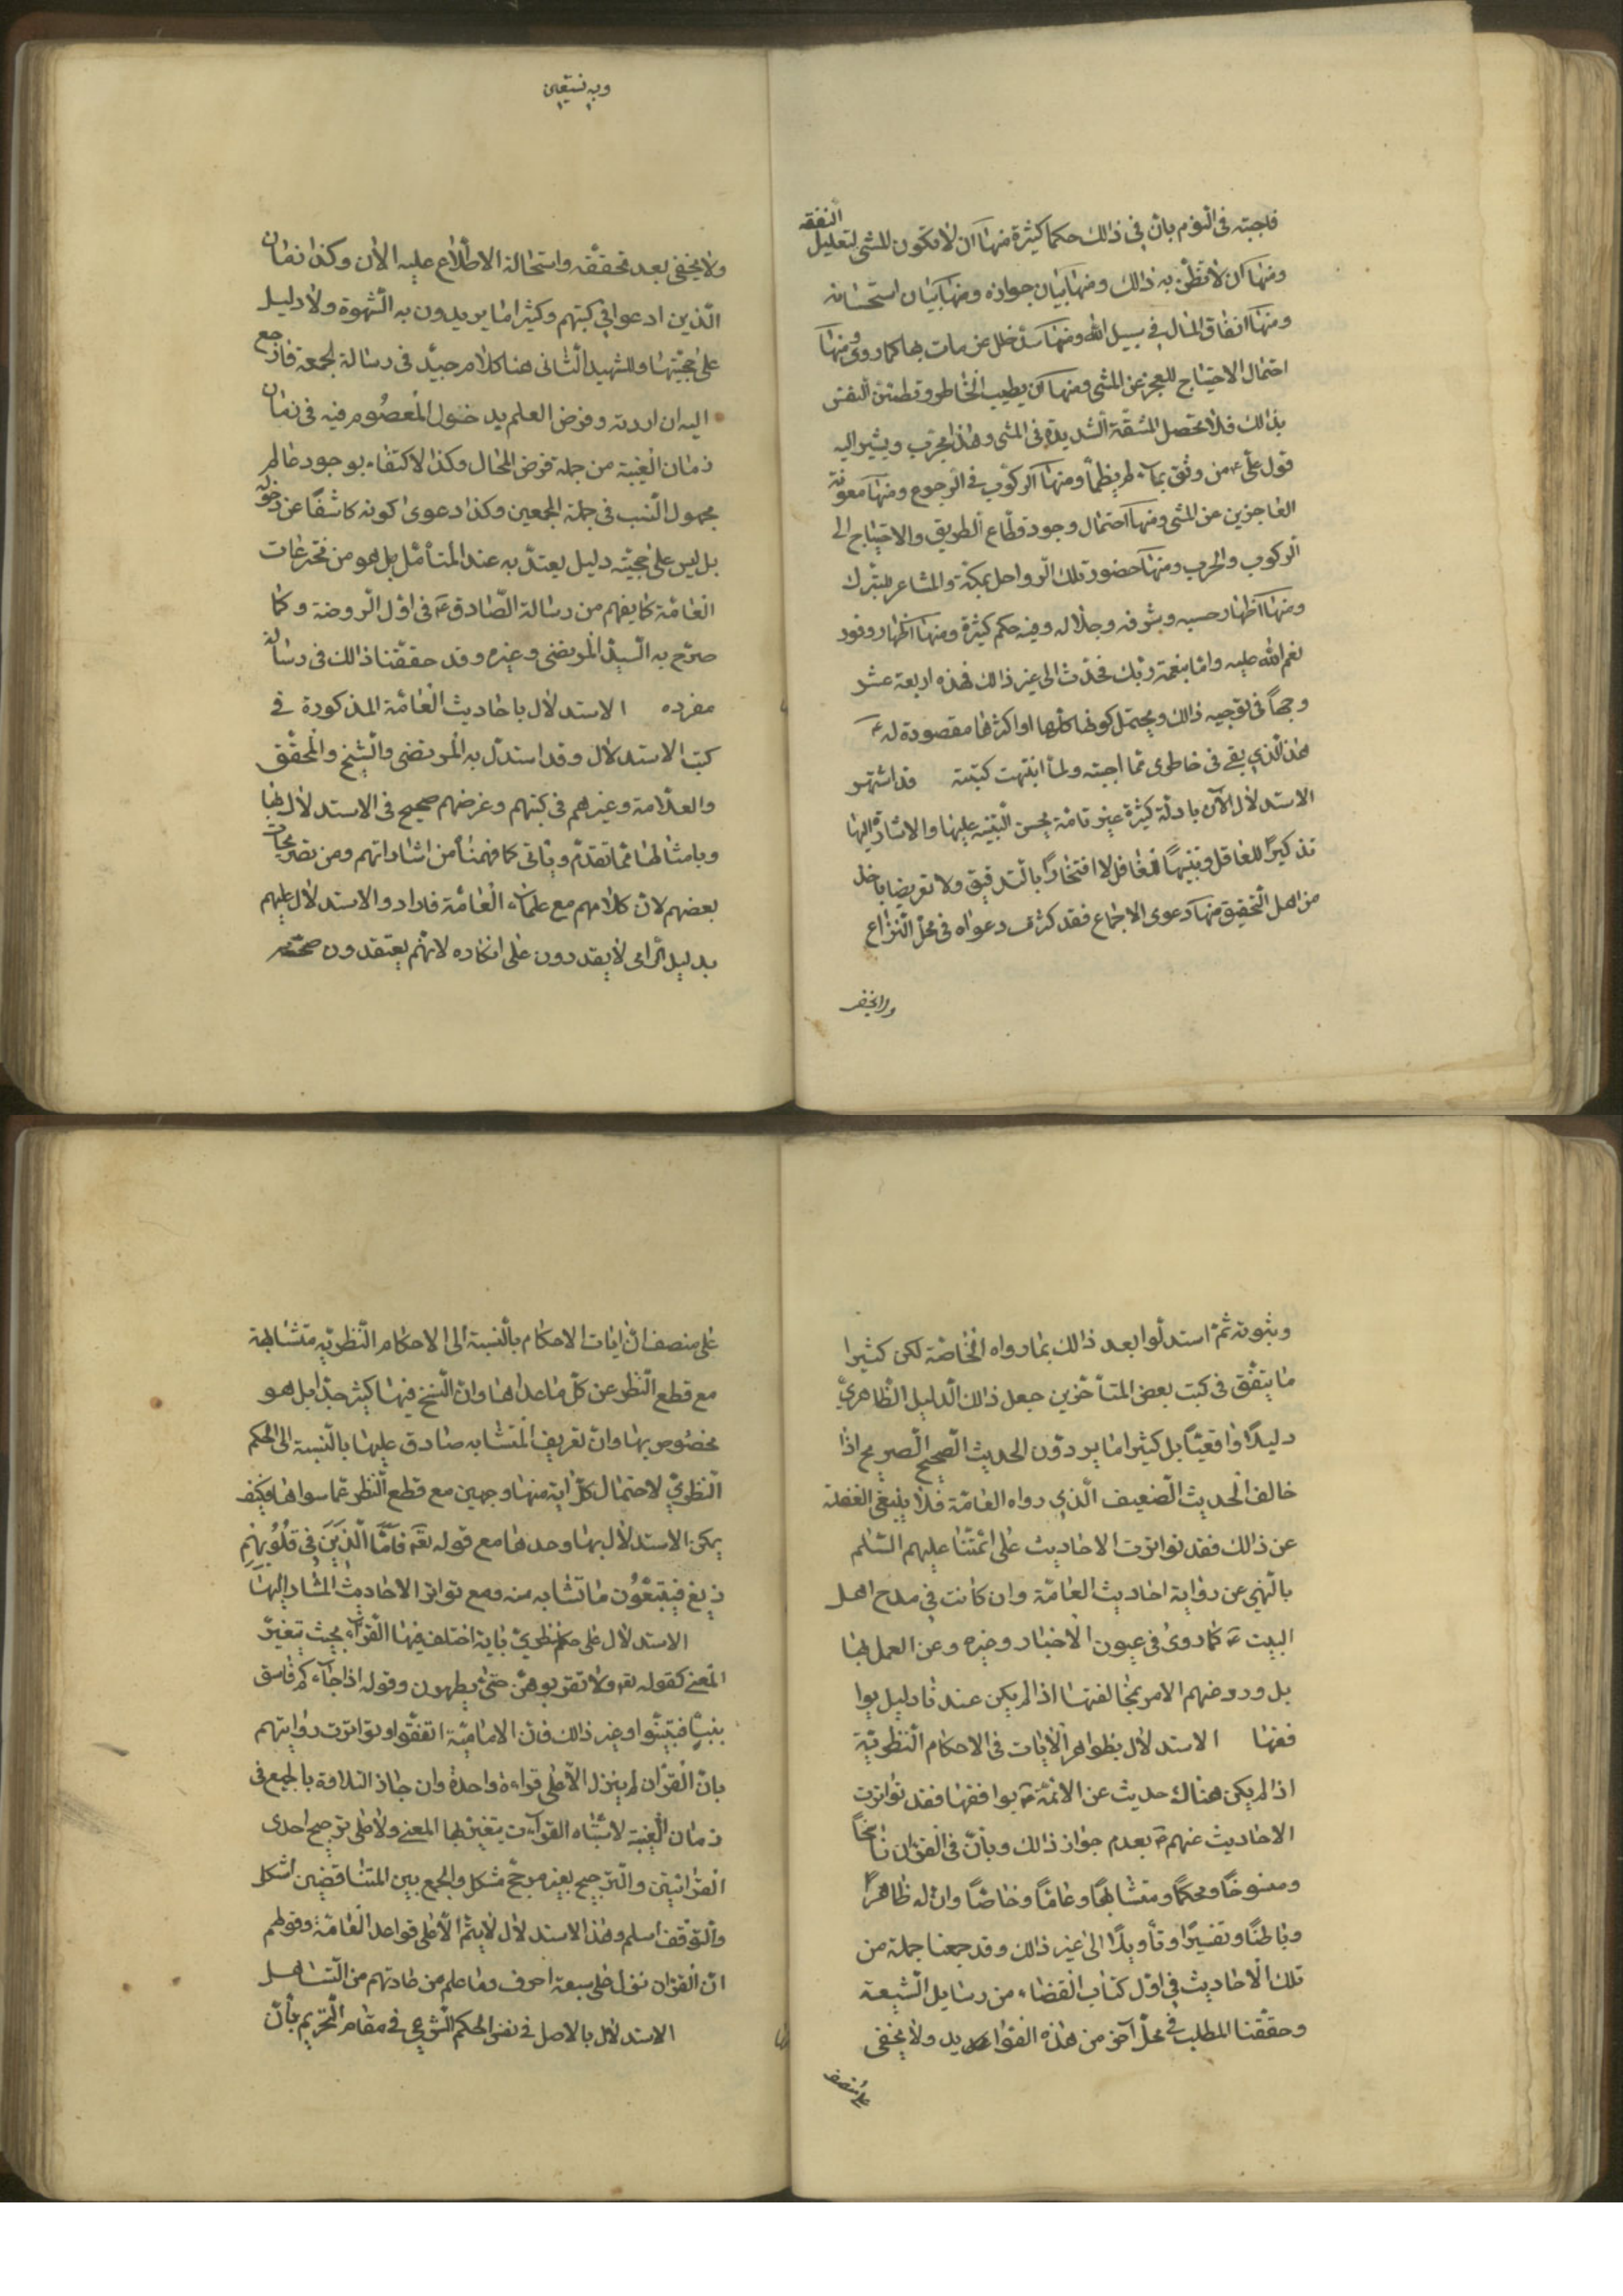 فاجبته فى النوم بان فى ذالك حكما كثيرة منها ان لا تكون المشى لتعليل النفقه
ومنها ان لا تظن به ذالك ومنها بيان جوازه ومنها بيان استحسانه
ومنها انفاق المال فى سبيل الله ومنها سد خلل من مات بها كما روى ومنها
احتمال الاحتياج للعجز عن المشى ومنها ان يطيب الخاطر وتطمئن النفس
بذالك فلا تحصل المشقة الشديدة فى المشى وهذا مجرب ويشير اليه
قول على ع من وثق بماء لم يظمأ ومنها الركوب فى الرجوع ومنها معونة
العاجزين عن المشى ومنها احتمال وجود قطاع الطريق والاحتياج الى
الركوب والحرب ومنها حضور تلك الرواحل بمكة والمشاعر للتبرك
ومنها اظهار حسبه وشرفه وجلاله وفيه حكم كثيرة ومنها اظهار وفور
نعم الله عليه واما بنعمة ربك فحدث الى غير ذالك فهذه اربعة عشر
وجهاً فى توجيه ذالك ويحتمل كونها كلها او اكثرها مقصودة له ع
هذا الذى بقى فى خاطرى مما اجبته ولما انتبهت كتبته قد اشتهر
الاستدلال الآن بادلة كثيرة غير تامة يحسن التنبيه عليها والاشارة اليها
تذكيرًا للغافل وتنبيهًا للغافل لا افتخارًا بالتدقيق ولا تعريضا باحد
من اهل التحقيق منها دعوى الاجماع فقد كثرت دعواه فى محل النزاع
ولا يخفى
وبه نستعين
ولا يخفى بعد تحققه واستحالة الاطلاع عليه الان وكذا زمان
الذين ادعوا فى كتبهم وكثيرا ما يريدون به الشهوة ولا دليل
على حجيتها وللشهيد الثانى هنا كلام جيد فى رسالة الجمعة فارجع
اليه ان اردته وفرض العلم بدخول المعصوم فيه فى زمان
زمان الغيبة من جملة فرض المحال وكذا الاكتفاء بوجود عالم
مجهول النسب فى جملة المجمعين وكذا دعوى كونه كاشفًا عن دخوله
بل ليس على حجيته دليل يعتد به عند المتأمل بل هو من مخترعات
العامة كما يفهم من رسالة الصادق ع فى اول الروضة وكما
صرح به السيد المرتضى وغيره وقد حققنا ذالك فى رسالة
مفرده الاستدلال باحاديث العامة المذكورة فى
كتب الاستدلال وقد استدل به المرتضى والشيخ والمحقق
والعلامة وغيرهم فى كتبهم وغرضهم صحيح فى الاستدلال بها
وبامثالها مما تقدم وياتى كما فهمنا من اشاراتهم ومن تصريحات
بعضهم لان كلامهم مع علماء العامة فارادوا الاستدلال عليهم
بدليل الزامى لا يقدرون على انكاره لانهم يعتقدون صحته
وثبوته ثم استدلوا بعد ذالك بما رواه الخاصة لكن كثيرا
ما يتفق فى كتب بعض المتأخرين جعل ذالك الدليل الظاهرى
دليلًا واقعيًا بل كثيرا ما يردون الحديث الصحيح الصريح اذا
خالف الحديث الضعيف الذى رواه العامة فلا ينبغى الغفلة
عن ذالك فقد تواترت الاحاديث على ائمتنا عليهم السلم
بالنهى عن رواية احاديث العامة وان كانت فى مدح اهل
البيت ع كما روى فى عيون الاخبار وغيره وعن العمل بها
بل ورد عنهم الامر بمخالفتها اذا لم يكن عندنا دليل يوا
فقها الاستدلال بظواهر الايات فى الاحكام النظرية
اذا لم يكن هناك حديث عن الائمة ع يوافقها فقد تواترت
الاحاديث عنهم ع بعدم جواز ذالك وبأن فى القران ناسخاً
ومنسوخًا ومحكمًا ومتشابهًا وعامًا وخاصًا وان له ظاهرًا
وباطنًا وتفسيرًا وتأويلًا الى غير ذالك وقد جمعنا جملة من
تلك الاحاديث فى اول كتاب القضاء من رسايل الشيعة
وحققنا المطلب فى محل آخر من هذه الفوايد ولا يخفى
على منصف
على منصف ان ايات الاحكام بالنسبة الى الاحكام النظرية متشابهة
مع قطع النظر عن كل ما عداها وان النسخ فيها كثير جدا بل هو
مخصوص بها وان تعريف المتشابه صادق عليها بالنسبة الى الحكم
النظرى لاحتمال كل اية منها وجهين مع قطع النظر عما سواها فكيف
يمكن الاستدلال بها وحدها مع قوله تع فَاَمَّا الَّذِينَ فى قُلُوبِهِم
زيغ فيتبعون ما تشابه منه ومع تواتر الاحاديث المشار اليها
الاستدلال على حكم نظرى باية اختلف فيها القراء بحيث يتغير
المعنى كقوله تع ولا تقربوهن حتى يطهرن وقوله اذا جاءكم فاسق
بنبأ فتبينوا وغير ذالك فان الامامية اتفقوا وتواترت رواياتهم
بان القران لم ينزل الا على قراءة واحدة وان جاز التلاوة بالجميع فى
زمان الغيبة لاشتباه القراءت يتغير بها المعنى ولا على ترجيح احدى
القرائتين والترجيح بغير مرجح مشكل والجمع بين المتناقضين اشكل
والتوقف اسلم وهذا الاستدلال لا يتم الا على قواعد العامة وقولهم
ان القران نزل على سبعة احرف وما علم من عادتهم من التساهل
الاستدلال بالاصل فى نفس الحكم الشرعى فى مقام التحريم بأن